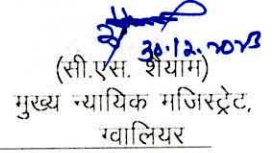 30.12.2023
(सी.एस. शैयाम)
मुख्य न्यायिक मजिस्ट्रेट,
ग्वालियर